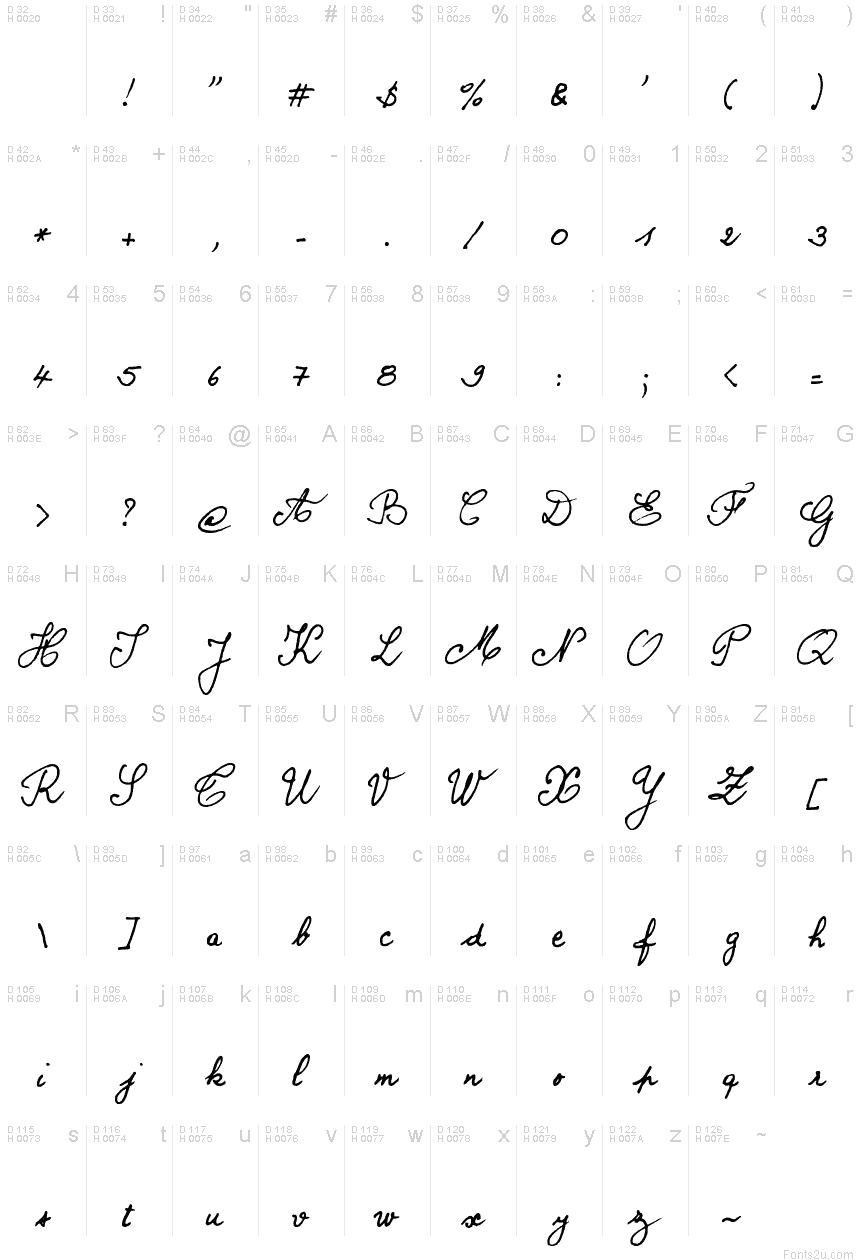 D 32 H 0020 D 33 H 0021 ! D 34 H 0022 " D 35 H 0023 # D 36 H 0024 $ D 37 H 0025 % D 38 H 0026 & D 39 H 0027 ' D 40 H 0028 ( D 41 H 0029 )
! " # $ % & ' ( )
D 42 H 002A * D 43 H 002B + D 44 H 002C , D 45 H 002D - D 46 H 002E . D 47 H 002F / D 48 H 0030 0 D 49 H 0031 1 D 50 H 0032 2 D 51 H 0033 3
* + , - . / 0 1 2 3
D 52 H 0034 4 D 53 H 0035 5 D 54 H 0036 6 D 55 H 0037 7 D 56 H 0038 8 D 57 H 0039 9 D 58 H 003A : D 59 H 003B ; D 60 H 003C < D 61 H 003D =
4 5 6 7 8 9 : ; < =
D 62 H 003E > D 63 H 003F ? D 64 H 0040 @ D 65 H 0041 A D 66 H 0042 B D 67 H 0043 C D 68 H 0044 D D 69 H 0045 E D 70 H 0046 F D 71 H 0047 G
> ? @ A B C D E F G
D 72 H 0048 H D 73 H 0049 I D 74 H 004A J D 75 H 004B K D 76 H 004C L D 77 H 004D M D 78 H 004E N D 79 H 004F O D 80 H 0050 P D 81 H 0051 Q
H I J K L M N O P Q
D 82 H 0052 R D 83 H 0053 S D 84 H 0054 T D 85 H 0055 U D 86 H 0056 V D 87 H 0057 W D 88 H 0058 X D 89 H 0059 Y D 90 H 005A Z D 91 H 005B [
R S T U V W X Y Z [
D 92 H 005C \ D 93 H 005D ] D 97 H 0061 a D 98 H 0062 b D 99 H 0063 c D 100 H 0064 d D 101 H 0065 e D 102 H 0066 f D 103 H 0067 g D 104 H 0068 h
\ ] a b c d e f g h
D 105 H 0069 i D 106 H 006A j D 107 H 006B k D 108 H 006C l D 109 H 006D m D 110 H 006E n D 111 H 006F o D 112 H 0070 p D 113 H 0071 q D 114 H 0072 r
i j k l m n o p q r
D 115 H 0073 s D 116 H 0074 t D 117 H 0075 u D 118 H 0076 v D 119 H 0077 w D 120 H 0078 x D 121 H 0079 y D 122 H 007A z D 126 H 007E ~
s t u v w x y z ~
Fonts2u.com